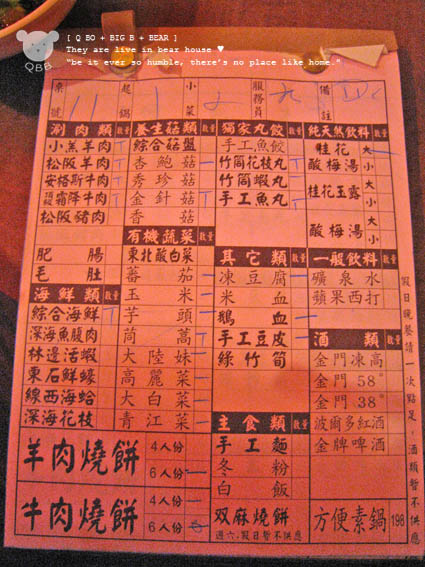 [ Q BO + BIG B + BEAR ]
They are live in bear house ♥
"be it ever so humble, there's no place like home."
QBB.
桌號 11 起鍋 1 小菜 2 服務員 備註
涮肉類 數量
小羔羊肉
松阪羊肉
安格斯牛肉
頂級霜降牛肉
松阪豬肉
肥腸
毛肚
海鮮類 數量
綜合海鮮
深海魚腹肉
林邊活蝦
東石鮮蠔
線西海蛤
深海花枝
養生菇類 數量
綜合菇盤
杏鮑菇
秀珍菇
金針菇
香菇
有機蔬菜 數量
東北酸白菜
蕃茄
玉米
芋頭
茼蒿
大陸妹
高麗菜
大白菜
青江菜
獨家丸餃 數量
手工魚餃
竹筒花枝丸
竹筒蝦丸
手工魚丸
其它類 數量
凍豆腐
米血
鵝血
手工豆皮
綠竹筍
主食類 數量
手工麵
冬粉
白飯
双麻燒餅
週六、假日暫不供應
純天然飲料 數量
桂花酸梅湯 大 小
桂花玉露酸梅湯 大 小 大 小
一般飲料 數量
礦泉水
蘋果西打
酒類 數量
金門凍高
金門 58°
金門 38°
波爾多紅酒
金牌啤酒
羊肉燒餅 4人份 6人份
牛肉燒餅 4人份 6人份
方便素鍋 198
假日晚餐請一次點足,酒類暫不供應